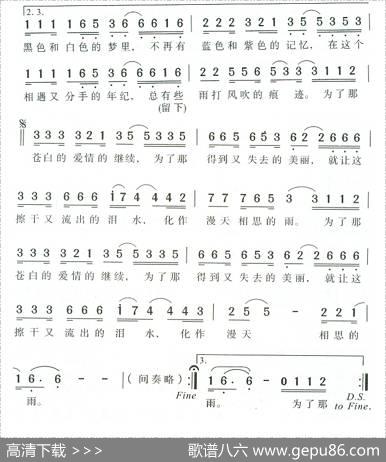 2.3.
1 1 1 1 6 5 3 6 6 6 1 6 2 2 2 3 2 1 6 1 1 1 1 2
黑色和白色的梦里, 不再有 蓝色和紫色的记忆, 在这个
1 1 1 1 6 5 3 6 6 6 1 6 2 2 5 5 5 6 5 3 3 3 1 1 2
相遇又分手的年纪, 总有些 雨打风吹的痕 迹。 为了那
(留下)
3 3 3 3 2 1 3 5 5 3 3 5 6 6 5 6 6 3 6 2 2 6 6 6
苍白的爱情的继续, 为了那 得到又失去的美丽, 就让这
3 3 3 6 6 6 i 7 4 4 4 2 7 7 7 6 5 3 3 1 1 2
擦干又流出的泪水, 化作 漫天相思的雨。 为了那
3 3 3 3 2 1 3 5 5 3 3 5 6 6 5 6 5 3 6 2 2 6 6 6
苍白的爱情的继续, 为了那 得到又失去的美丽, 就让这
3 3 3 6 6 6 i 7 4 4 4 3 2 5 5 - 2 2 1
擦干又流出的泪水, 化作 漫天 相思的
3.
1 6 · 6 - - (间奏略) : 1 6 · 6 - 0 1 1 2
雨。 Fine 雨。 为了那 D.S.
to Fine.
高清下载 >>> 歌谱八六 www.gepu86.com